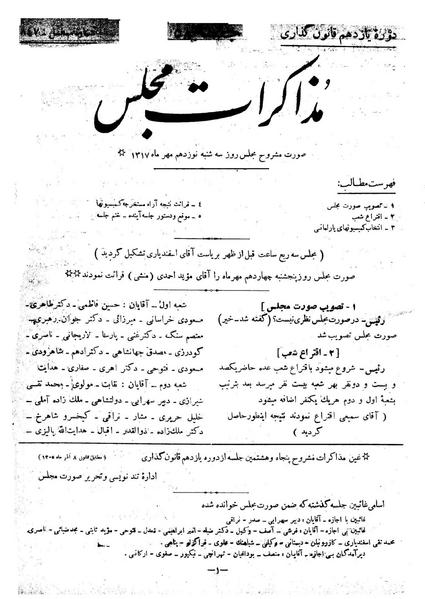 دورهٔ یازدهم قانون گذاری
مذاکرات مجلس
صورت مشروح مجلس روز سه شنبه نوزدهم مهر ماه ۱۳۱۷ ※
فهرست مطالب:
۱ - تصویب صورت مجلس
۲ - اقتراع شعب
۳ - انتخاب کمیسیونهای پارلمانی
۴ - قرائت نتیجه آراء مستخرجه کمیسیونها
۵ - موقع و دستور جلسه آینده - ختم جلسه
( مجلس سه ربع ساعت قبل از ظهر بریاست آقای اسفندیاری تشکیل گردید )
صورت مجلس روز پنجشنبه چهاردهم مهرماه را آقای مؤید احدی (منشی) قرائت نمودند ※※
۱ - تصویب صورت مجلس ]
رئیس - در صورت مجلس نظری نیست؟ (گفته شد - خیر)
صورت مجلس تصویب شد
[ ۲ - اقتراع شعب ]
رئیس - شروع میشود باقتراع شعب عده حاضر یکصد
و بیست و دو نفر بهر شعبه بیست نفر میرسد بعد بترتیب
بشعبهٔ اول و دوم هریک یکنفر اضافه میشود
( آقای سمیعی اقتراع نمودند نتیجه اینطور حاصل
گردید )
شعبه اول - آقایان: حسین فاطمی - دکتر طاهری -
مسعودی خراسانی - میرزائی - دکتر جوان - رهبری -
معتصم سنگ - دکتر غنی - پارسا - لاریجانی - ناصری -
گودرزی - مصدق جهانشاهی - دکتر ادهم - شاهرودی -
مسعودی - فتوحی - دکتر اهری - صفاری - هدایت
شعبه دوم - آقایان: نقابت - مولوی - محمد تقی
شیرازی - دبیر سهرابی - دولتشاهی - ملک زاده آملی -
خلیل حریری - مشار - نراقی - کیخسرو شاهرخ -
دکتر ملک زاده - ذوالقدر - اقبال - هدایت الله پالیزی -
※ عین مذاکرات مشروح پنجاه و هشتمین جلسه از دوره یازدهم قانون گذاری (مطابق قانون ۸ آذر ماه ۱۳۰۵)
اداره تند نویسی و تحریر صورت مجلس
اسامی غائبین جلسه گذشته که ضمن صورت مجلس خوانده شده
غائبین با اجازه - آقایان: دبیر سهرابی - صدر - نراقی
محمد تقی اسفندیاری - کازرونیان - دبستانی - وکیلی -
دیرآمدگان بی اجازه - آقایان: منصف - بوداغیان - تهرانچی - نیکپور - صفوی - ارکانی
— ۱ —